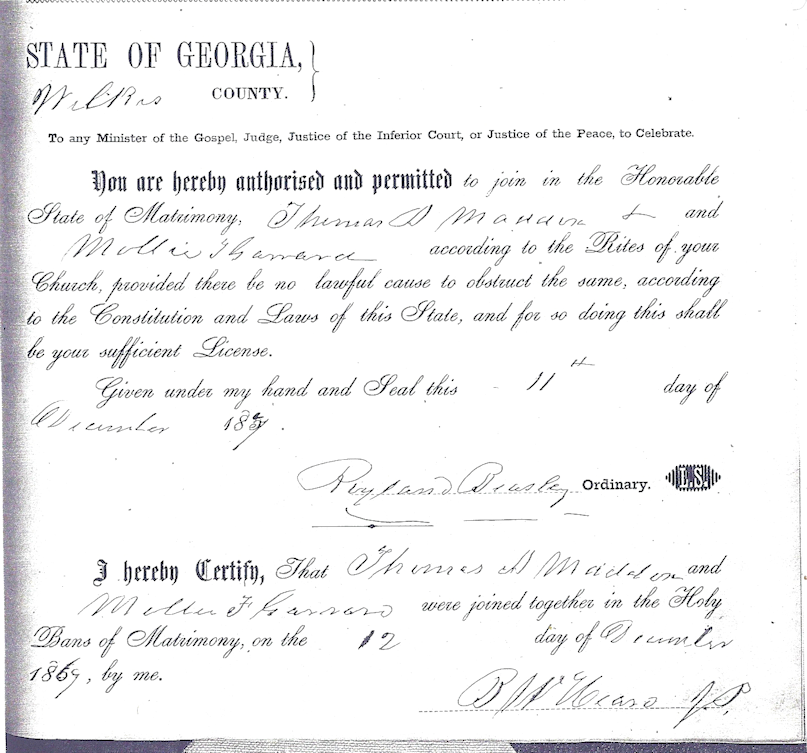 STATE OF GEORGIA,
Wilkes COUNTY.
To any Minister of the Gospel, Judge, Justice of the Inferior Court, or Justice of the Peace, to Celebrate.
You are hereby anthorised and permitted to join in the Honorable
State of Matrimony, Thomas D Maddox & and
Mollie F Garrard according to the Rites of your
Church, provided there be no lawful cause to obstruct the same, according
to the Constitution and Laws of this State, and for so doing this shall
be your sufficient License.
Given under my hand and Seal this 11th day of
December
Royland Beasley Ordinary. L.S.
I hereby Certify, That Thomas D Maddox and
Mollie F Garrard were joined together in the Holy
Bans of Matrimony, on the 12 day of December
, by me.
B W Heard J.P.